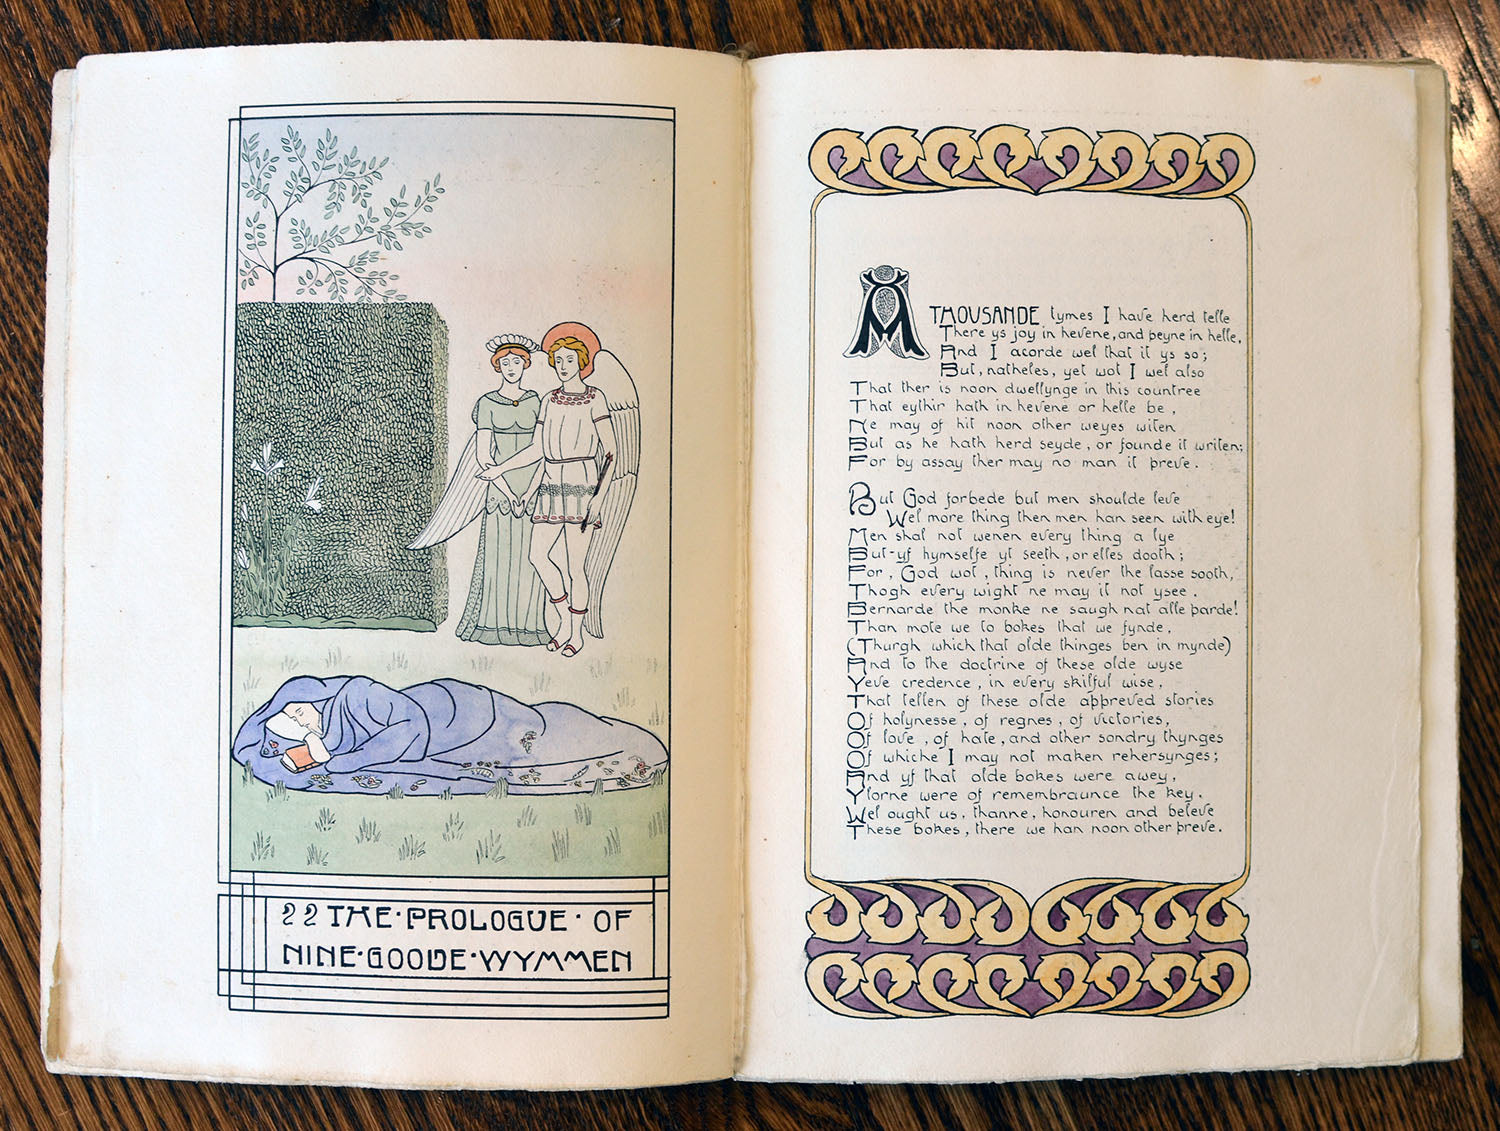 THE·PROLOGUE·OF
NINE·GOODE·WYMMEN
A THOUSANDE tymes I have herd telle
There ys joy in hevene, and peyne in helle,
And I acorde wel that it ys so;
But, natheles, yet wot I wel also
That ther is noon dwellynge in this countree
That eythir hath in hevene or helle be,
Ne may of hit noon other weyes witen
But as he hath herd seyde, or founde it writen;
For by assay ther may no man it preve.
But God forbede but men shoulde leve
Wel more thing then men han seen with eye!
Men shal not wenen every thing a lye
But-yf hymselfe yt seeth, or elles dooth;
For, God wot, thing is never the lasse sooth,
Thogh every wight ne may it not ysee.
Bernarde the monke ne saugh nat alle parde!
Than mote we to bokes that we fynde,
(Thurgh which that olde thinges ben in mynde)
And to the doctrine of these olde wyse
Yeve credence, in every skilful wise,
That tellen of these olde appreved stories
Of holynesse, of regnes, of victories,
Of love, of hate, and other sondry thynges
Of whiche I may not maken rehersynges;
And yf that olde bokes were awey,
Ylorne were of remembraunce the key.
Wel ought us, thanne, honouren and beleve
These bokes, there we han noon other preve.